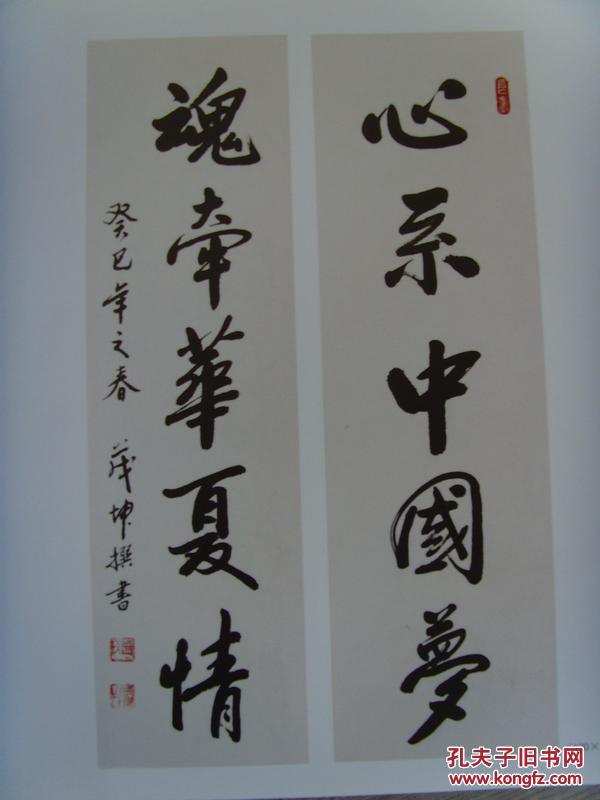 心系中國夢
魂牵華夏情
癸巳年之春 茂坤撰書
孔夫子旧书网
www.kongfz.com